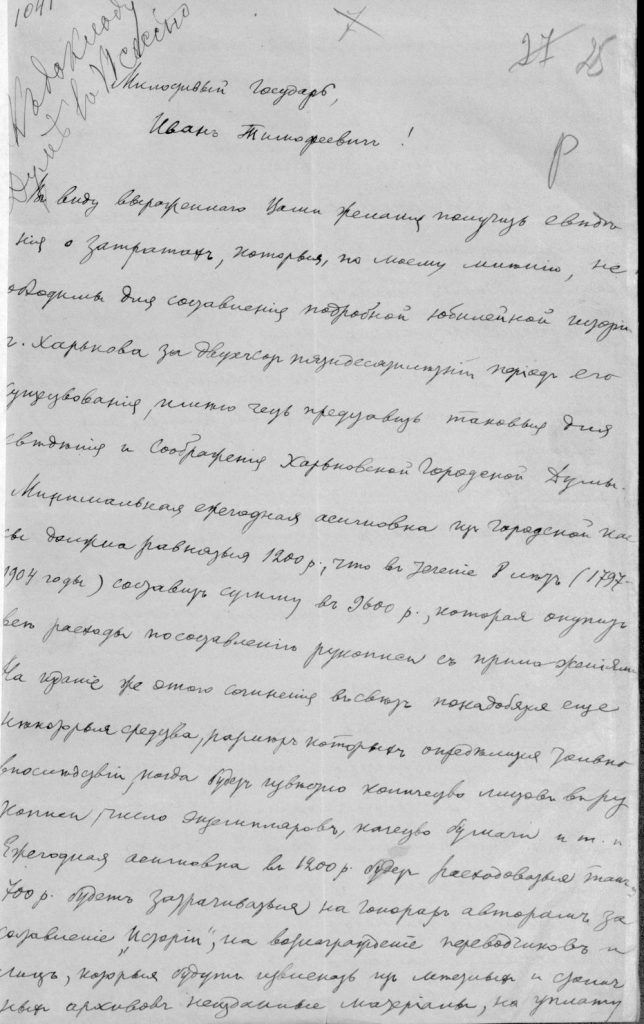 1041
7
27 25
Къ докладу
Думѣ
Милостивый Государь,
Иванъ Тимофеевичъ!
Р
Въ виду выраженнаго Вами желанія получить свѣдѣ
нія о затратахъ, которыя, по моему мнѣнію, не
обходимы для составленія подробной юбилейной исторіи
г. Харькова за двухсотпятидесятилѣтній періодъ его
существованія, имѣю честь представить таковыя для
свѣдѣнія и соображенія Харьковской Городской Думы.
Минимальная ежегодная асигновка изъ городской кас
сы должна равняться 1200 р., что въ теченіе 8 лѣтъ (1797-
1904 годы) составитъ сумму въ 9600 р., которая окупитъ
всѣ расходы по составленію рукописи съ приложеніями
На изданіе же этого сочиненія въ свѣтъ понадобятся еще
нѣкоторыя средства, размѣръ которыхъ опредѣлится точно
впослѣдствіи, когда будетъ извѣстно количество листовъ въ ру
кописи, число экземпляровъ, качество бумаги и т. п.
Ежегодная асигновка въ 1200 р. будетъ расходоваться такъ:
700 р. будетъ затрачиваться на гонораръ авторамъ за
составленіе "Исторіи", на вознагражденіе переводчиковъ и
лицъ, которыя будутъ извлекать изъ мѣстныхъ и столич
ныхъ архивовъ неизданные матеріалы, на уплату